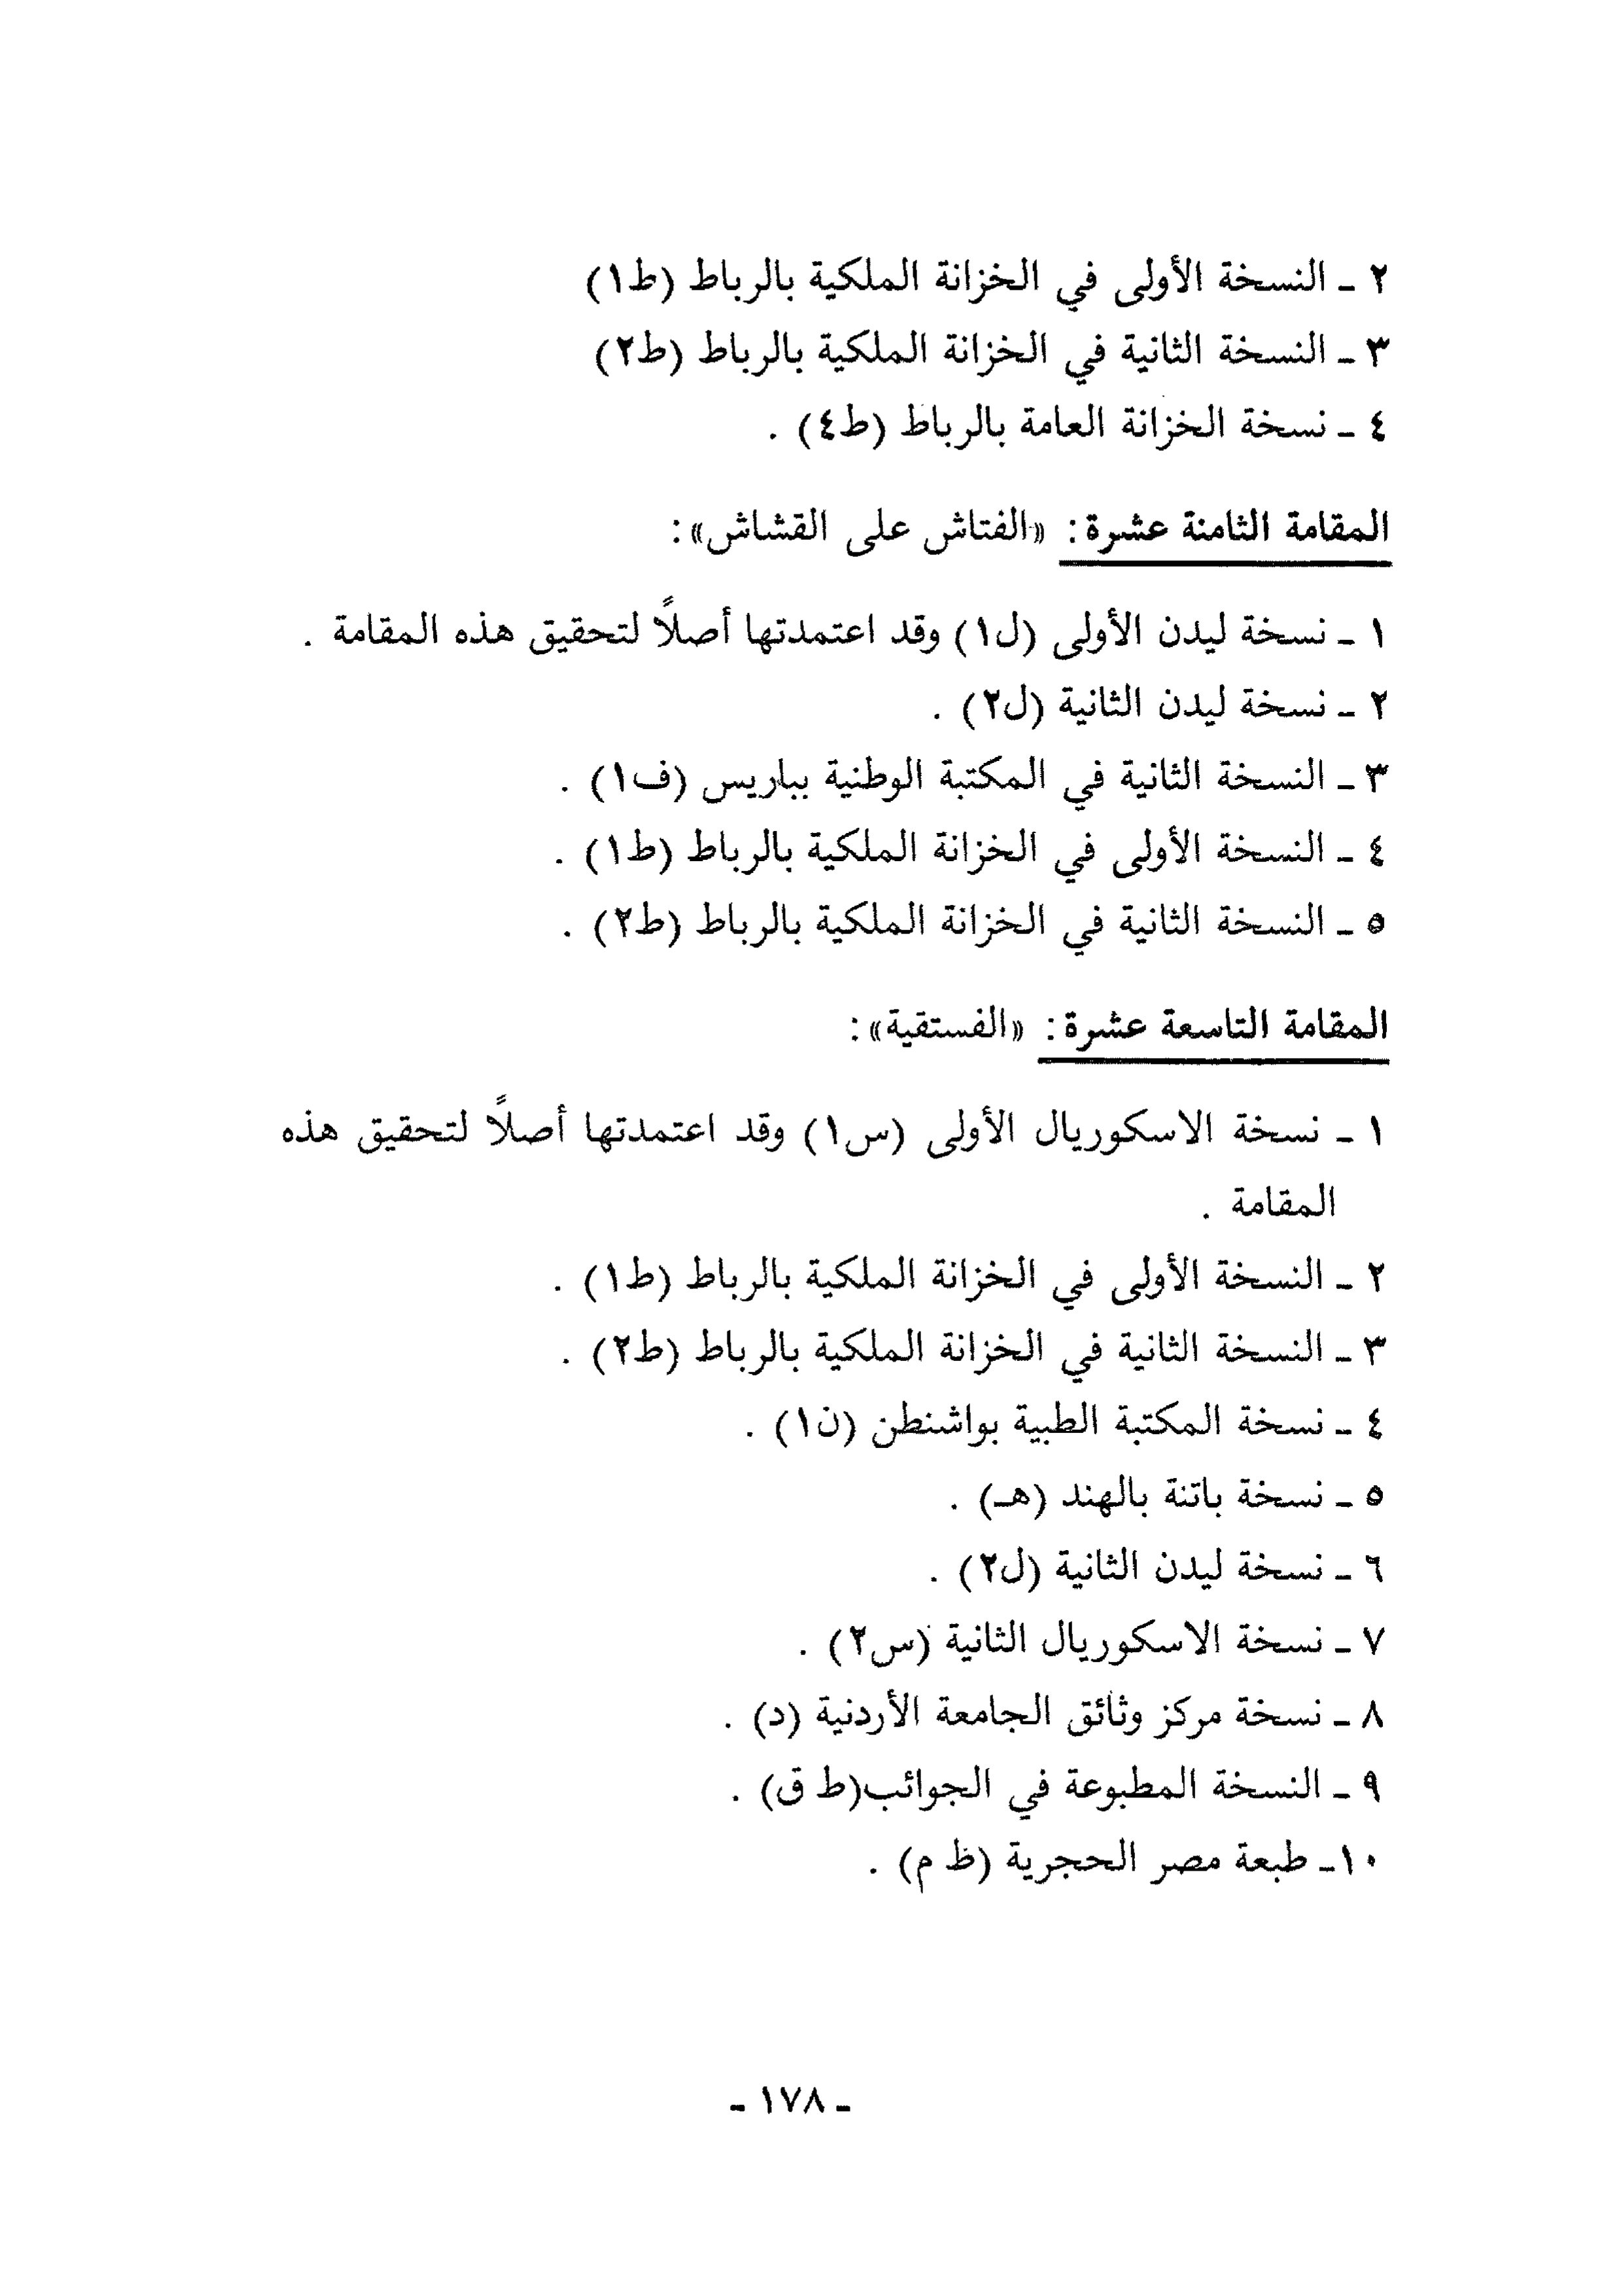 ٢ ـ النسخة الأولى في الخزانة الملكية بالرباط (ط١)
٣ ـ النسخة الثانية في الخزانة الملكية بالرباط (ط٢)
٤ ـ نسخة الخزانة العامة بالرباط (ط٤) .
المقامة الثامنة عشرة: «الفتاش على القشاش»:
١ ـ نسخة ليدن الأولى (ل١) وقد اعتمدتها أصلاً لتحقيق هذه المقامة .
٢ ـ نسخة ليدن الثانية (ل٢) .
٣ ـ النسخة الثانية في المكتبة الوطنية بباريس (ف١) .
٤ ـ النسخة الأولى في الخزانة الملكية بالرباط (ط١) .
٥ ـ النسخة الثانية في الخزانة الملكية بالرباط (ط٢) .
المقامة التاسعة عشرة: «الفستقية»:
١ ـ نسخة الاسكوريال الأولى (س١) وقد اعتمدتها أصلاً لتحقيق هذه
المقامة .
٢ ـ النسخة الأولى في الخزانة الملكية بالرباط (ط١) .
٣ ـ النسخة الثانية في الخزانة الملكية بالرباط (ط٢) .
٤ ـ نسخة المكتبة الطبية بواشنطن (ن١) .
٥ ـ نسخة باتنة بالهند (هـ) .
٦ ـ نسخة ليدن الثانية (ل٢) .
٧ ـ نسخة الاسكوريال الثانية (س٢) .
٨ ـ نسخة مركز وثائق الجامعة الأردنية (د) .
٩ ـ النسخة المطبوعة في الجوائب(ط ق) .
١٠ـ طبعة مصر الحجرية (ظ م) .
ـ ١٧٨ ـ